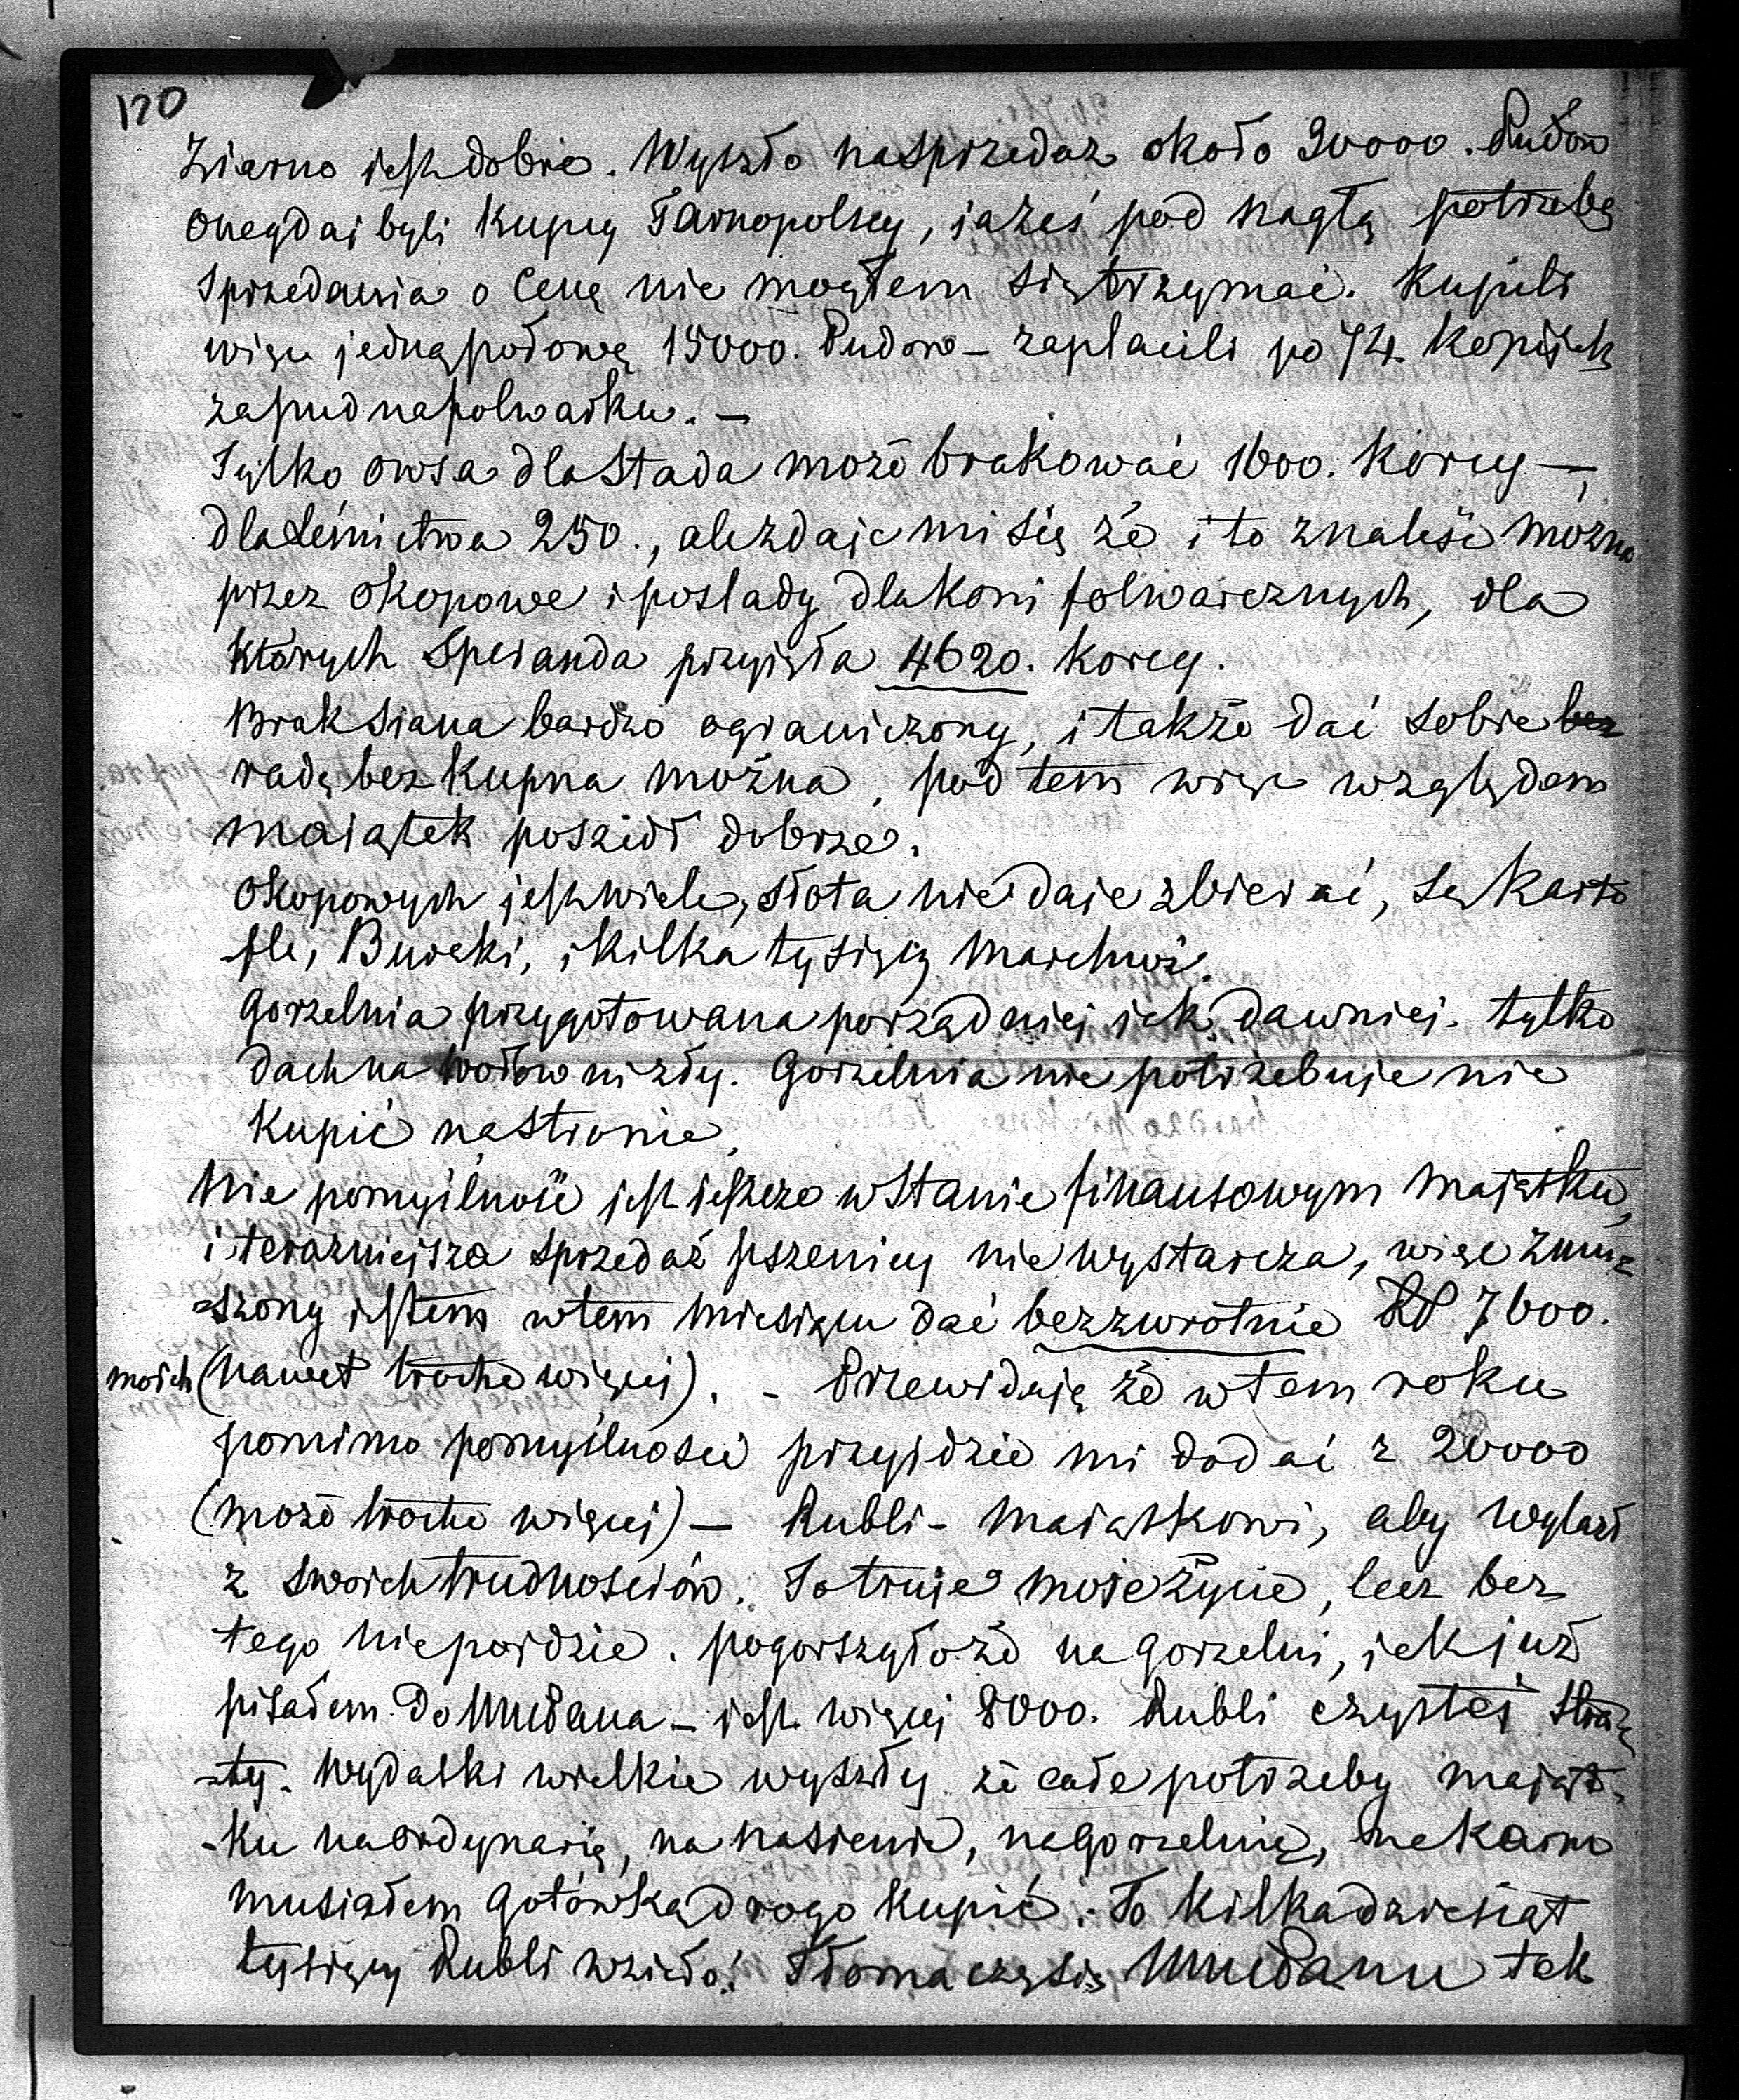 120
Ziarno jest dobre. Wyszło na sprzedaż około 30000. Pudów
onegdaj byli kupcy Tarnopolscy, jażeś pod nagłą potrzebą
sprzedania o cenę nie mogłem się trzymać. Kupili
więc jedną połowę 15000. Pudów – zapłacili po 74. kopijek
za pud na folwarku. –
Tylko owsa dla Stada może brakować 1600. korcy –,
dla Leśnictwa 250., ale zdaje mi się że i to znaleść można
przez okopowe i poslady dla koni folwarcznych, dla
których Speranda przyjęła 4620. korcy.
Brak siana bardzo ograniczony, i także dać sobie bez
radę bez kupna można, pod tem więc względem
majątek poszedł dobrze.
Okopowych jest wiele, słota nie daje zbierać, są karto
fle, Buraki, i kilka tysięcy marchwi.
Gorzelnia przygotowana porządniej jak dawniej. tylko
dach na wołowni zły. Gorzelnia nie potrzebuje nic
kupić na stronie.
Nie pomyślność jest jeszcze w stanie finansowym majątku,
i teraźniejsza sprzedaż pszenicy nie wystarcza, więc zmu
szony jestem w tem miesiącu dać bezzwrotnie RS 7600.
moich (nawet trochę więcej). – Przewiduję że w tem roku
pomimo pomyślności przyjdzie mi dodać z 20000
(może trochę więcej) – Rubli – majątkowi, aby wylazł
z swoich trudnościów. To truje moje życie, lecz bez
tego nie pójdzie. pogorszyło że na gorzelni, jak już
pisałem do – jest więcej 8000. Rubli czystej stra
-ty. Wydatki wielkie wyszły że całe potrzeby mająt-
-ku na ordynarię, na nasienie, na gorzelnię, na karm
musiałem gotówką drogo kupić. To kilkadziesiąt
tysięcy Rubli wzięło! Tłomaczę się tak